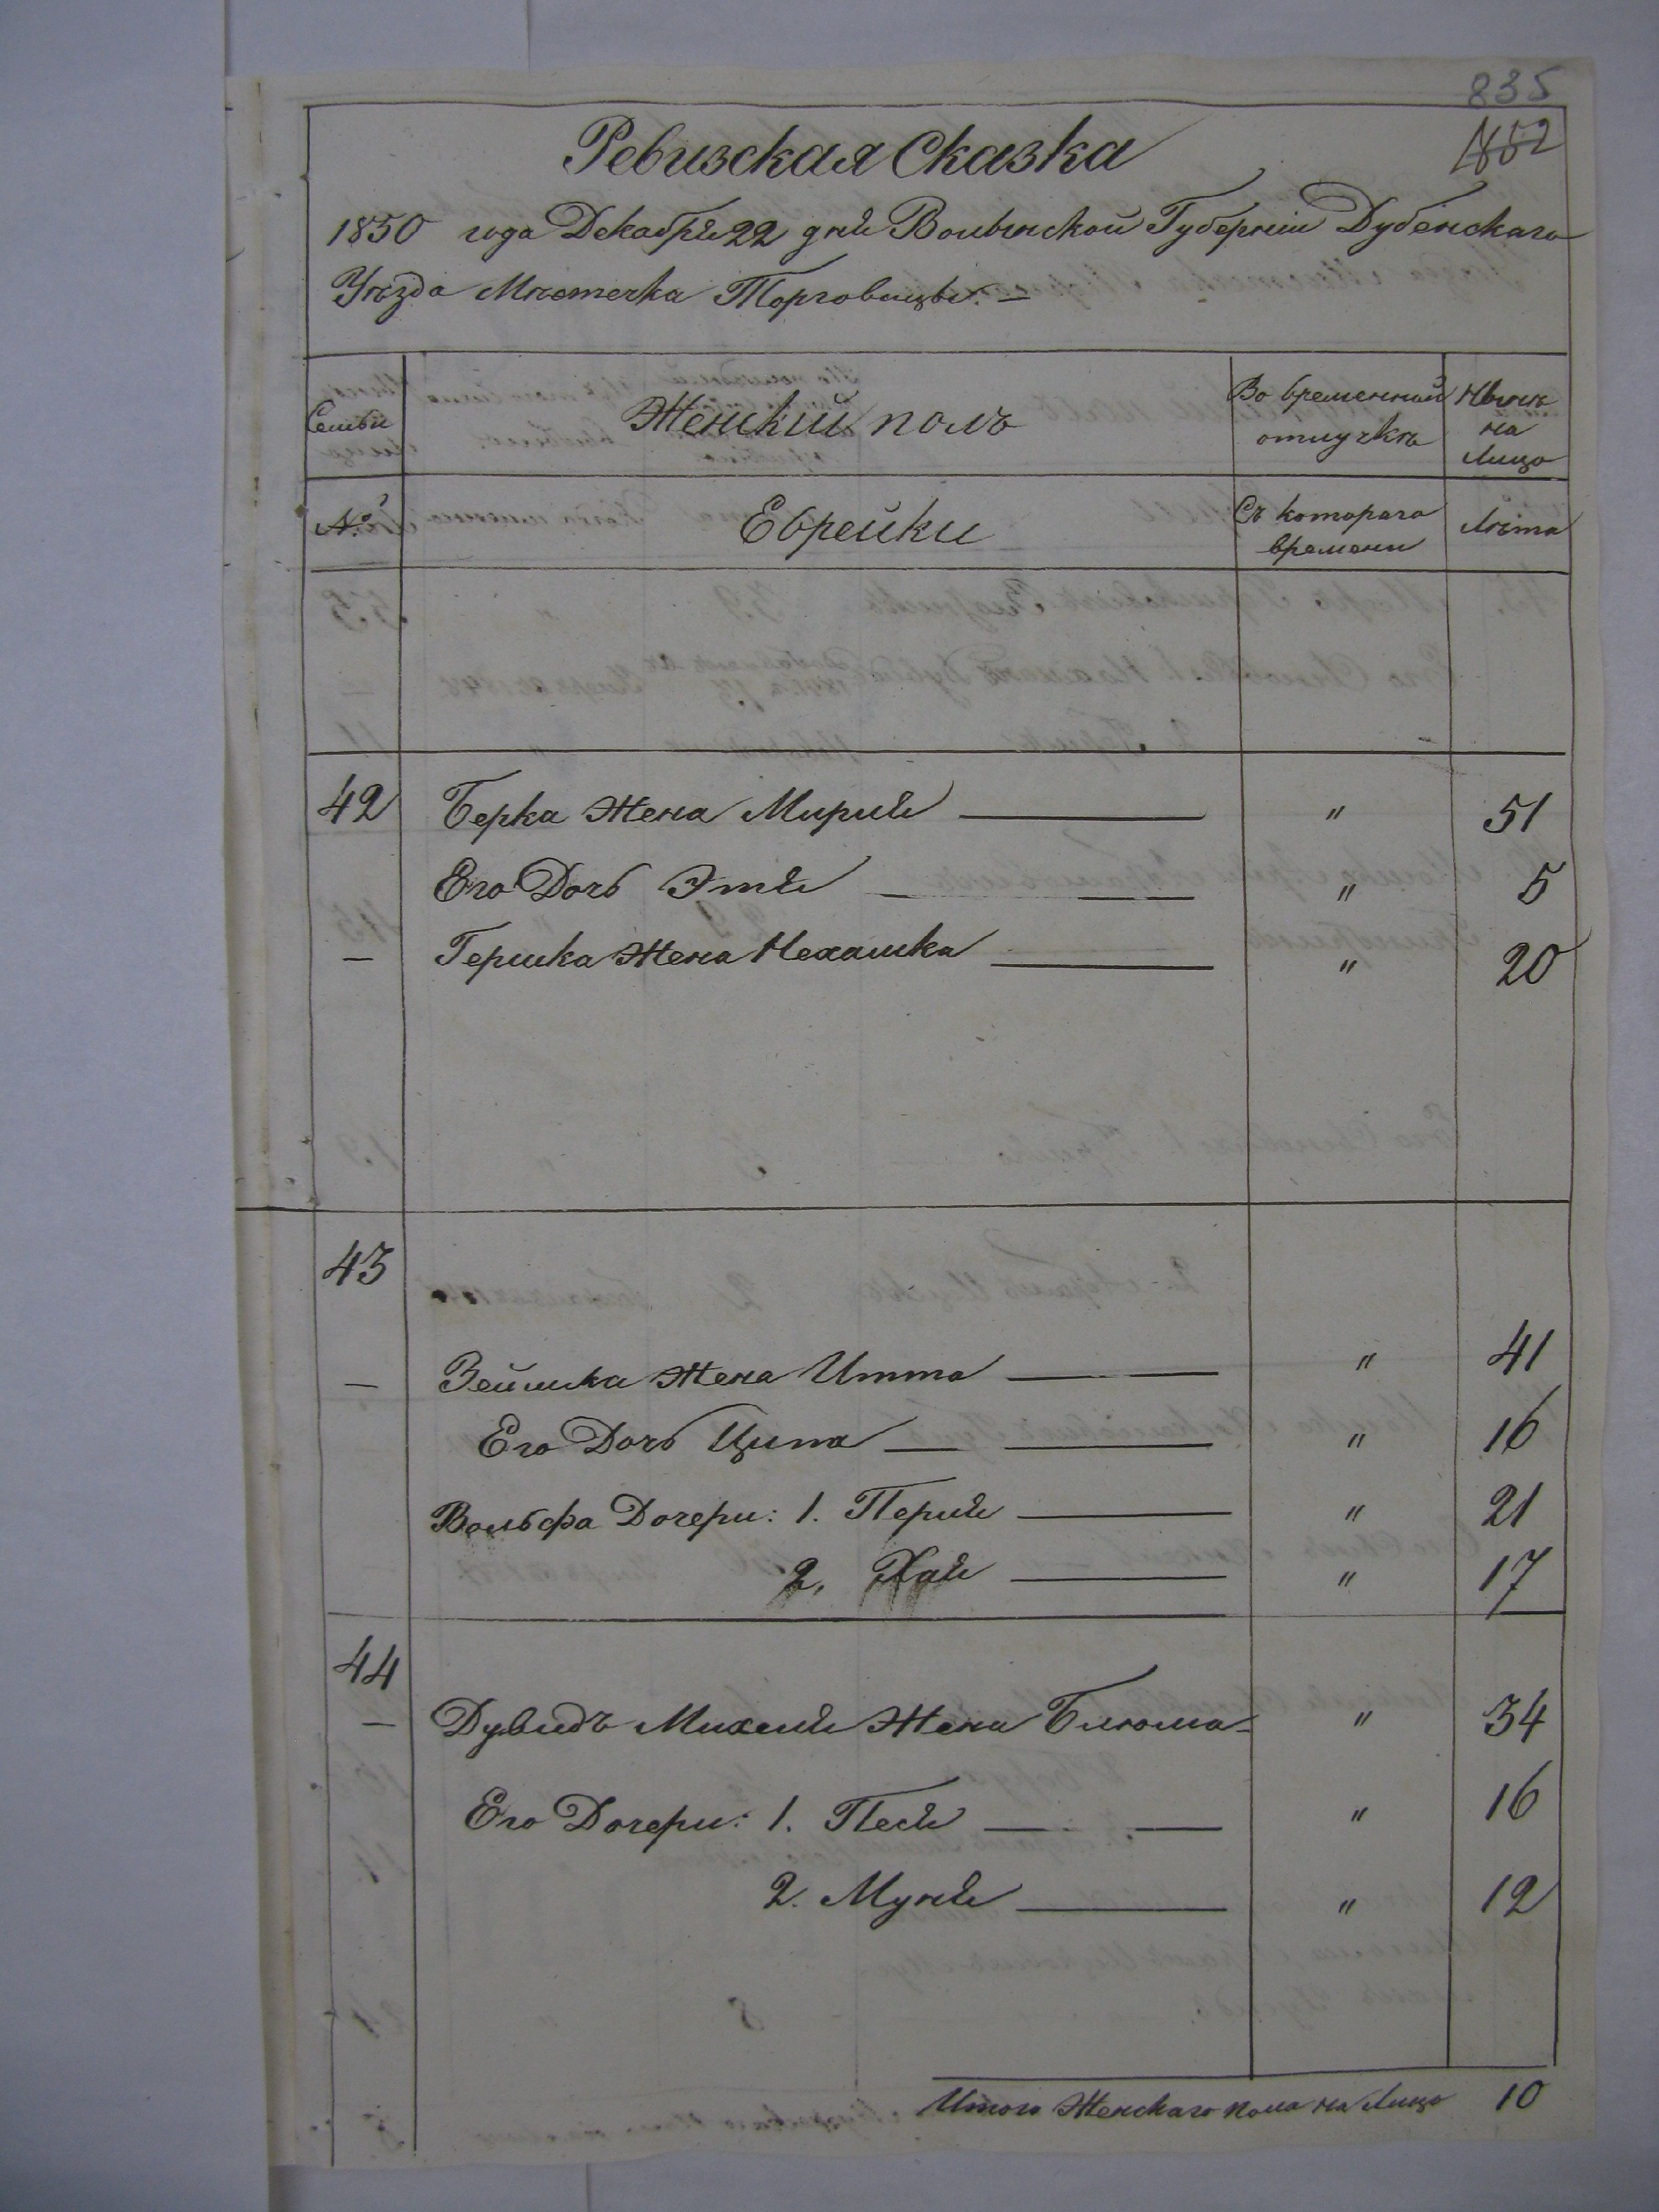 835
1852
Ревизская Сказка
1850 года Декабря 22 дня Волынской Губернiи Дубенскаго
Уѣзда Мѣстечка Торговицы. —
Семьи
Женскiй полъ
Во временной отлучкѣ
Нынѣ на Лицо
№
Еврейки
Съ котораго времени
Лѣта
42 Берка Жена Мирия — " 51
Его Дочь Этя — " 5
— Гершка Жена Нехашка — " 20
43
— Зейлика Жена Итта — " 41
Его Дочь Ципа — " 16
Вольфа Дочери: 1. Перля — " 21
2, Хая — " 17
44
— Дувидъ Михеля Жена Блюма - " 34
Его Дочери: 1. Песя — " 16
2. Муня — " 12
Итого Женскаго пола на Лицо 10